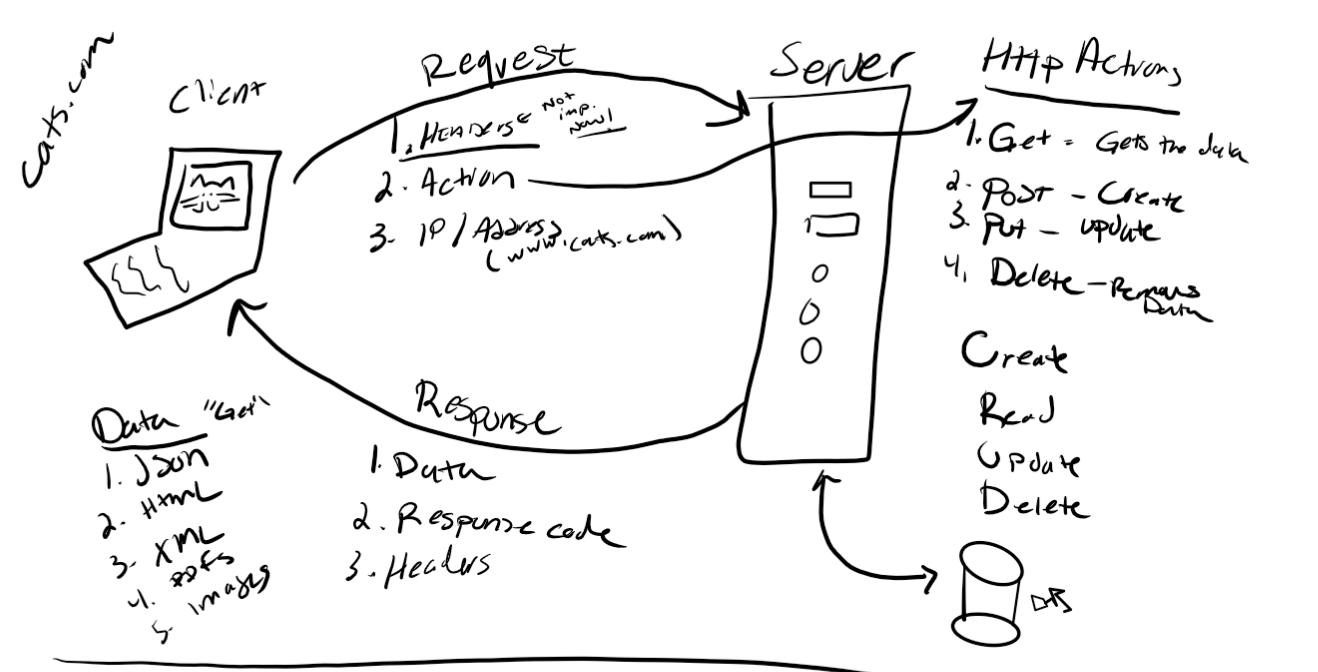 cats.com
Client
Request
1. HEADERS
Not
imp.
Now!
2. Action
3. IP / Address
(www.cats.com)
Server
Http Actions
1. Get = Gets the data
2. Post - Create
3. Put - update
4. Delete - Removes
Data
Create
Read
Update
Delete
DB
Response
1. Data
2. Response code
3. Headers
Data "Get"
1. Json
2. HtmL
3. XML
4. PDFs
5. Images